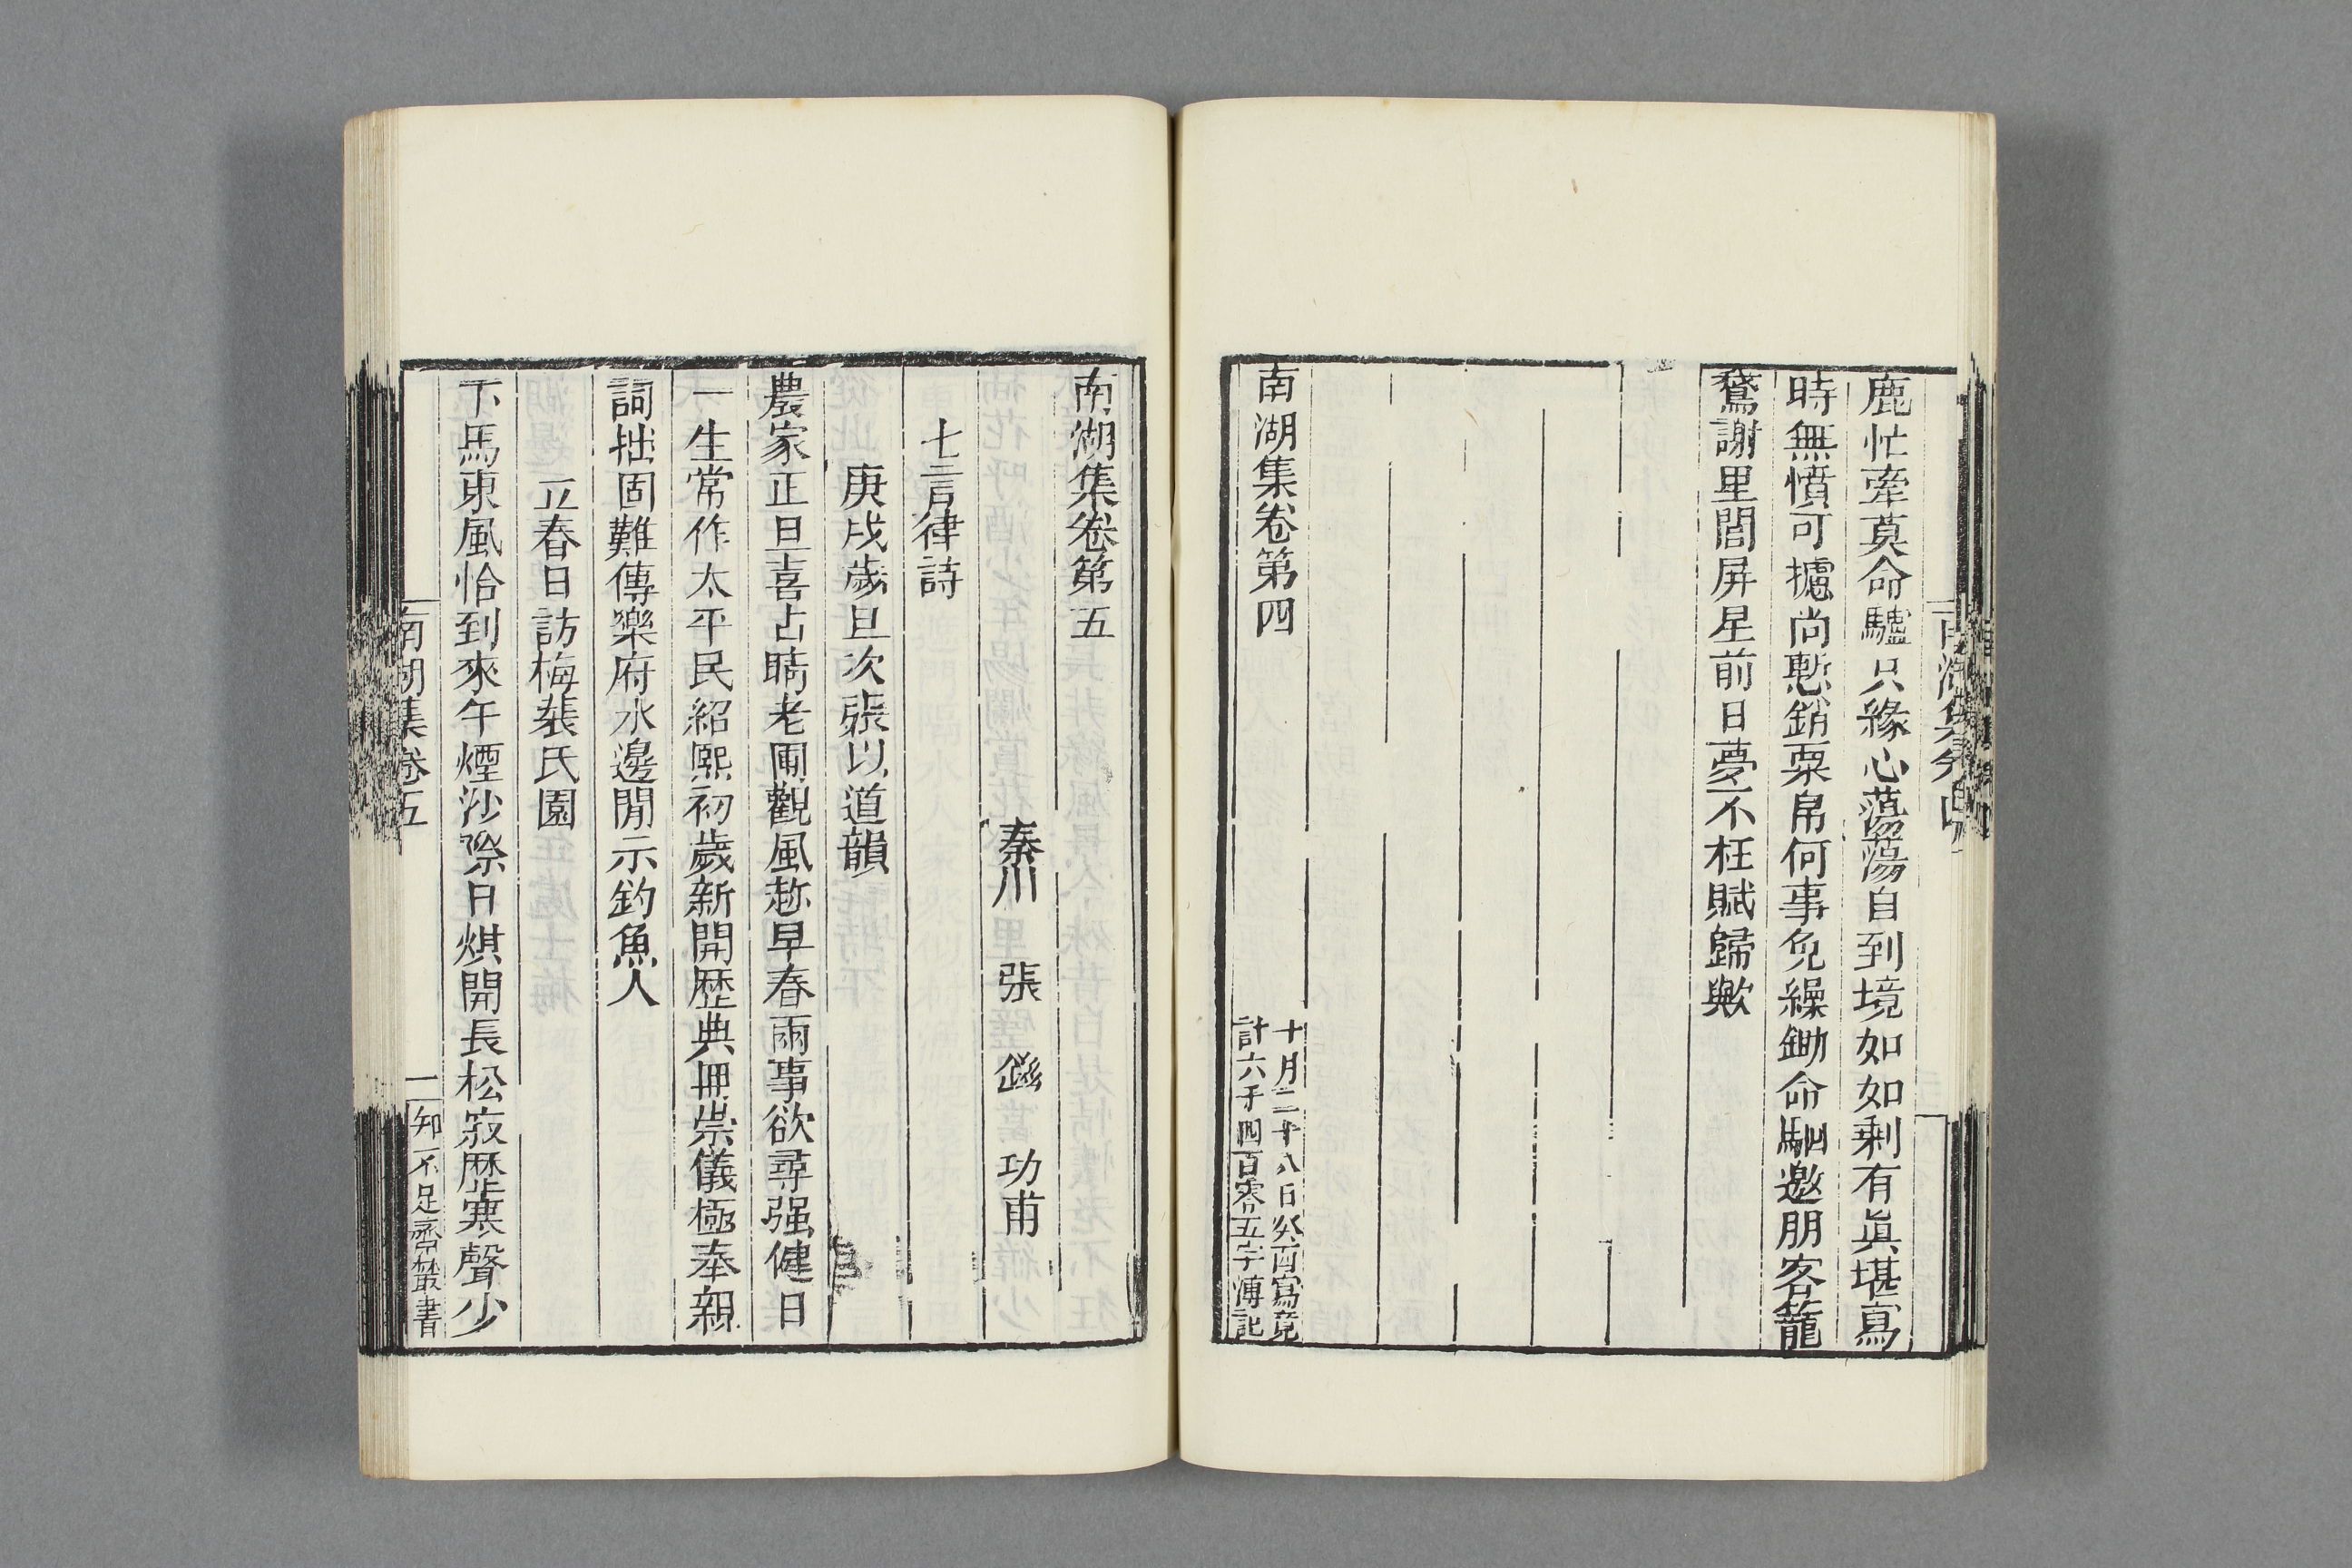 鹿忙牽莫命驢只緣心蕩蕩自到境如如剩有眞堪寫
時無憤可攄尚慙銷粟帛何事免繰鋤命駟邀朋客籠
鵞謝里閭屏星前日夢不枉賦歸歟
南湖集卷第四
十月二十八日癸酉寫竟
計六千四百零五字溥記
南湖集卷第五
秦川 張 鎡 功甫
七言律詩
庚戌歲旦次張以道韻
農家正旦喜占晴老圃觀風趂早春雨事欲尋强健日
一生常作太平民紹熙初歲新開歷典冊崇儀極奉親
詞拙固難傳樂府水邊閒示釣魚人
立春日訪梅裴氏園
下馬東風恰到來午煙沙際日烘開長松寂歷寒聲少
南湖集卷五
一
知不足齋叢書